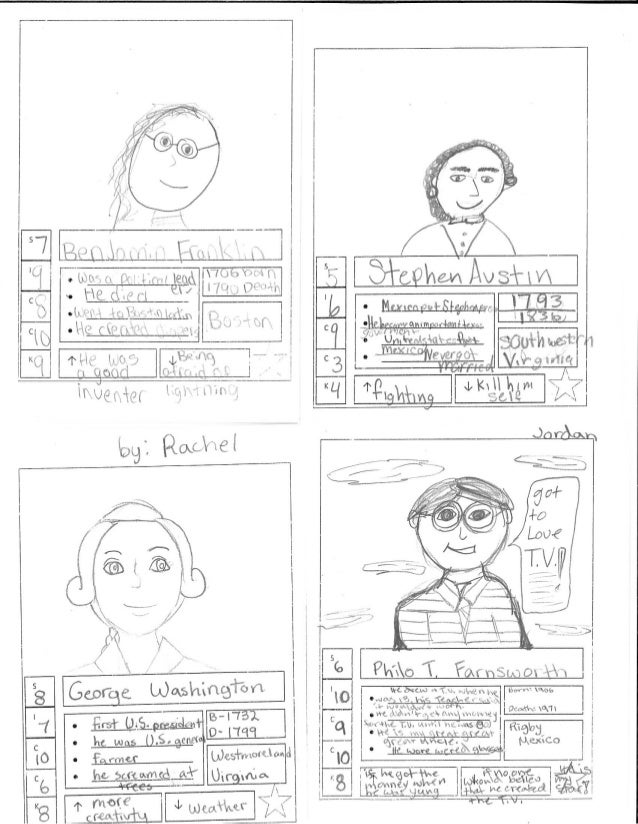 S 7
I 9
C 8
C 10
K 9
Benjamin Franklin
• was a Political leader
• He died
• went to Boston Latin
• He created diapers
1706 born
1790 Death
Boston
↑ He was a good inventer
↓ Being afraid of lightning
by: Rachel
S 5
I 6
C 9
C 3
K 4
Stephen Austin
• Mexico put Stephen
• He became an important texas
goverment
•
Mexico
• Never got
married
1793
1836
Southwestern
Virginia
↑ fighting
↓ Kill him
self
Jordan
S 8
I 7
C 10
C 6
K 8
George Washington
• first U.S. president
• he was U.S. general
• farmer
• he screamed at
trees
B-1732
D-1799
Westmoreland
Virginia
↑ more
creativty
↓ Weather
got
to
Love
T.V.!
S 6
I 10
C 9
C 10
K 8
Philo T. Farnsworth
• He drew a T.V. when he
was 15, his teacher said
it wouldn't work
• He didn't get any monney
for the T.V. until he was 80
• He is my great great
great
• He wore wered glasses
Born: 1906
Death: 1971
Rigby
Mexico
if he got the
monney when
he was yung
if no one
whould belev
that he created
the T.V.
this is
my
star!